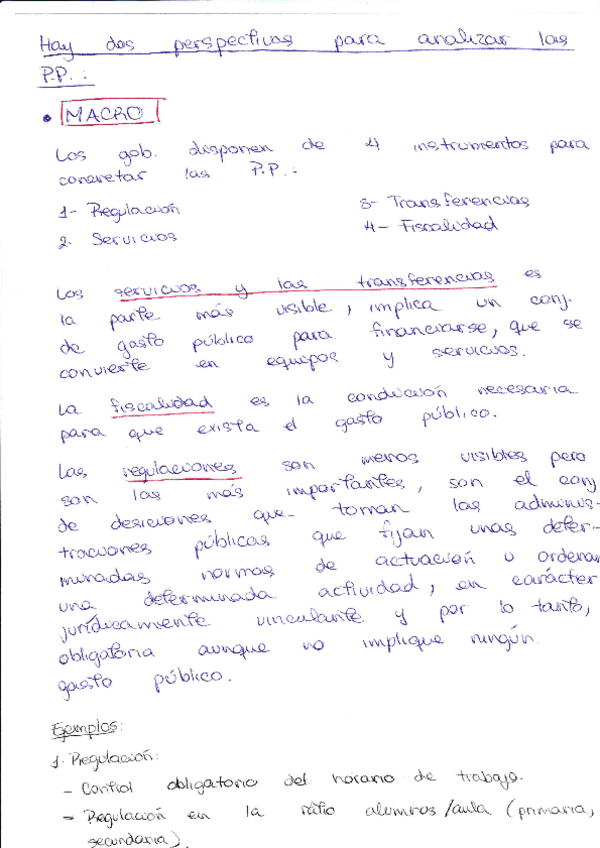 Hay dos perspectivas para analizar las
P.P.:
• MACRO
Los gob. disponen de 4 instrumentos para
concretar las P.P.:
1- Regulación
2. Servicios
3- Transferencias
4- Fiscalidad
Los servicios y las transferencias es
la parte más visible, implica un conj.
de gasto público para financiarse, que se
convierte en equipos y servicios.
La fiscalidad es la condición necesaria
para que exista el gasto público.
Las regulaciones son menos visibles pero
son las más importantes, son el conj
de desiciones que toman las adminis-
traciones públicas que fijan unas deter-
minadas normas de actuación u ordenan
una determinada actividad, en carácter
jurídicamente vinculante y por lo tanto,
obligatoria aunque no implique ningún
gasto público.
Ejemplos:
1. Regulación:
- Control obligatorio del horario de trabajo.
- Regulación en la ratio alumnos/aula (primaria,
secundaria)